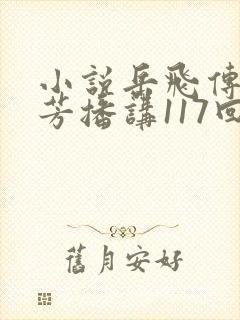 小说岳飛傳
芳播講117回
舊月安好